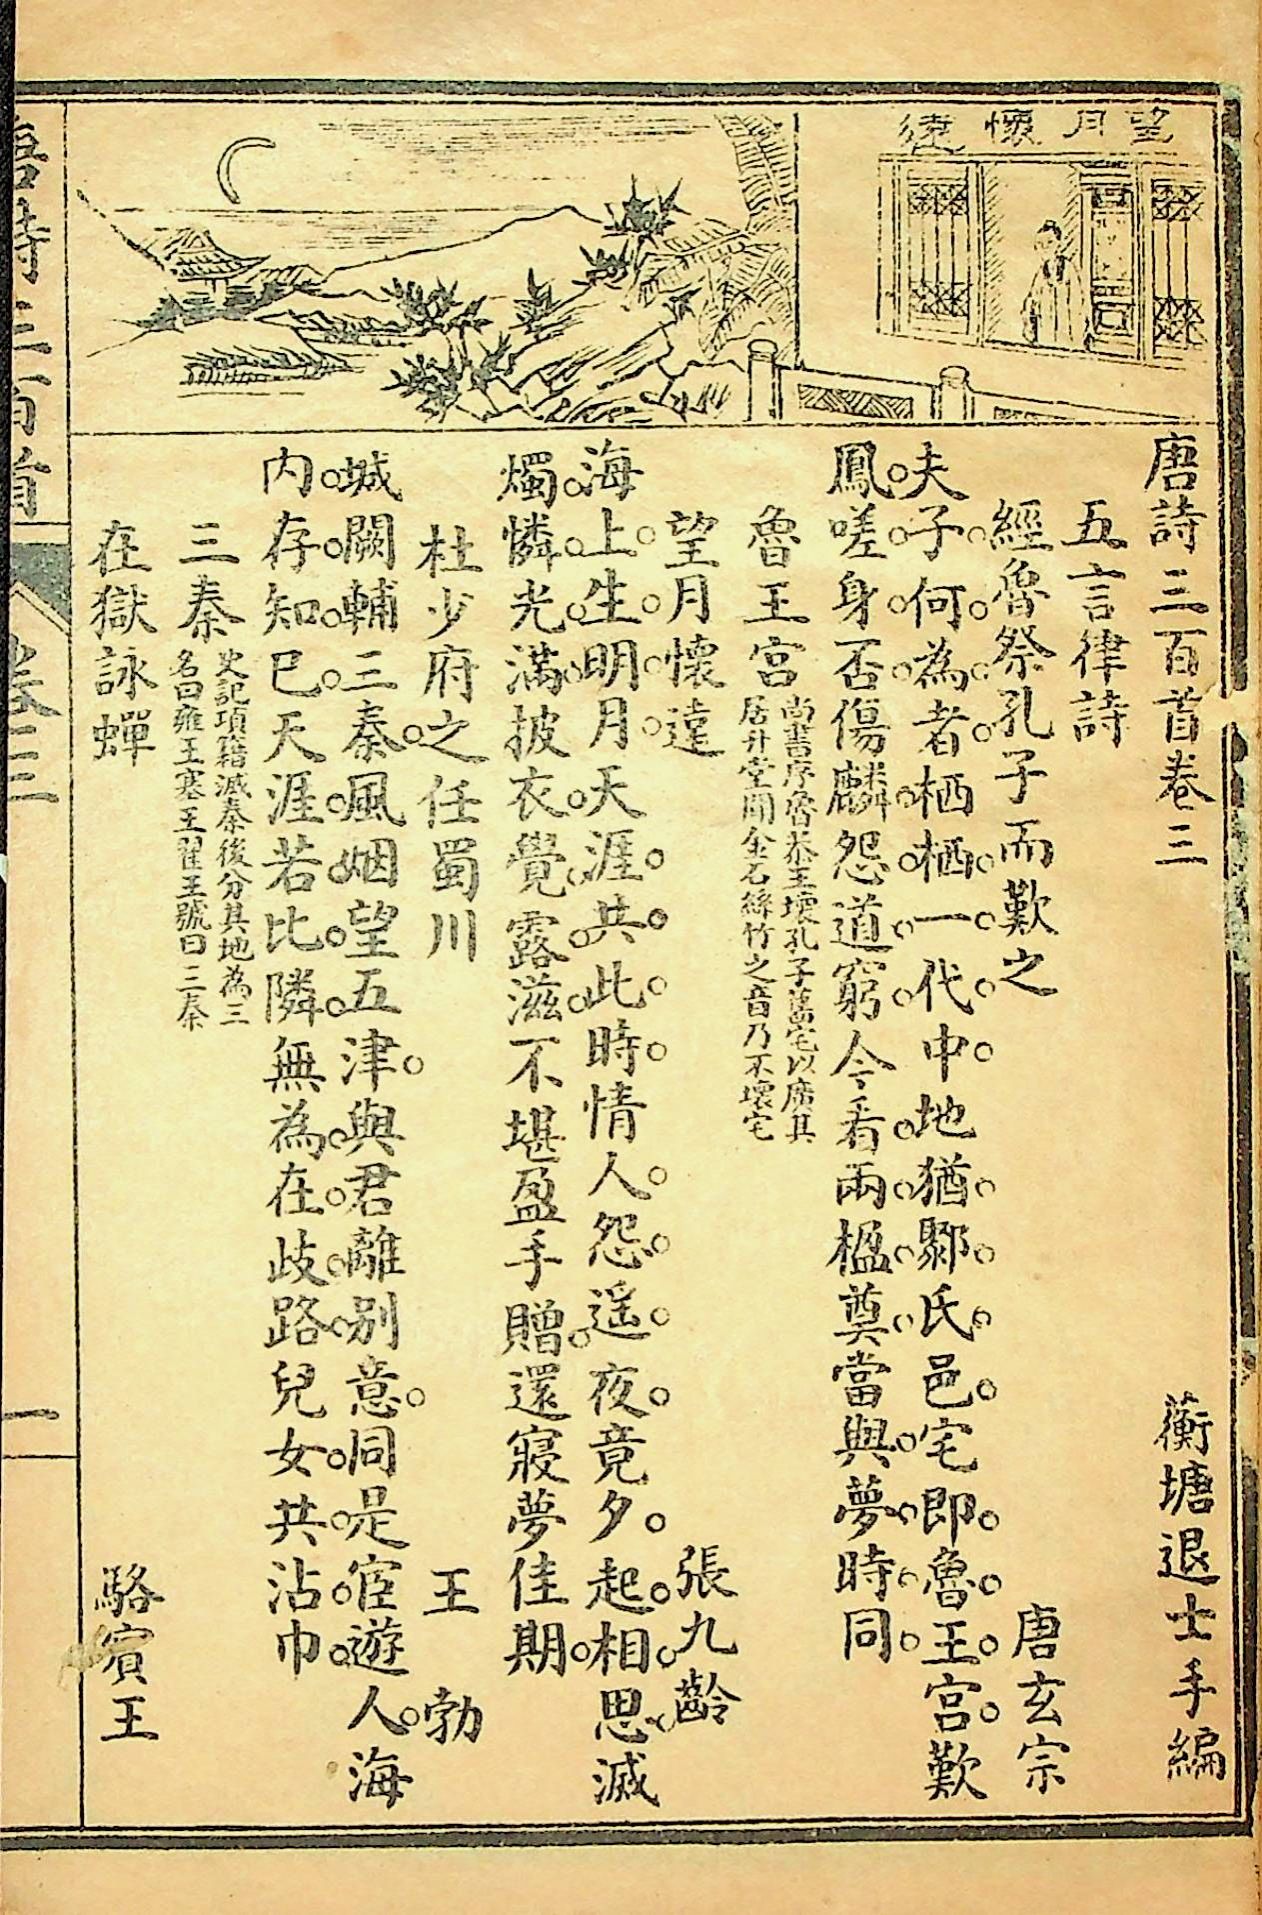 望月懷遠
唐詩三百首卷三
蘅塘退士手編
五言律詩
經魯祭孔子而歎之
唐玄宗
夫子何為者栖栖一代中地猶鄹氏邑宅即魯王宮歎
鳳嗟身否傷麟怨道窮今看兩楹奠當與夢時同
魯王宮
尚書序魯恭王壞孔子舊宅以廣其
居升堂聞金石絲竹之音乃不壞宅
望月懷遠
張九齡
海上生明月天涯共此時情人怨遥夜竟夕起相思滅
燭憐光滿披衣覺露滋不堪盈手贈還寢夢佳期
杜少府之任蜀川
王勃
城闕輔三秦風烟望五津與君離别意同是宦遊人海
内存知已天涯若比隣無為在歧路兒女共沾巾
三秦
史記項籍滅秦後分其地為三
名曰雍王塞王翟王號曰三秦
在獄詠蟬
駱賓王
唐詩三百首
卷三
一